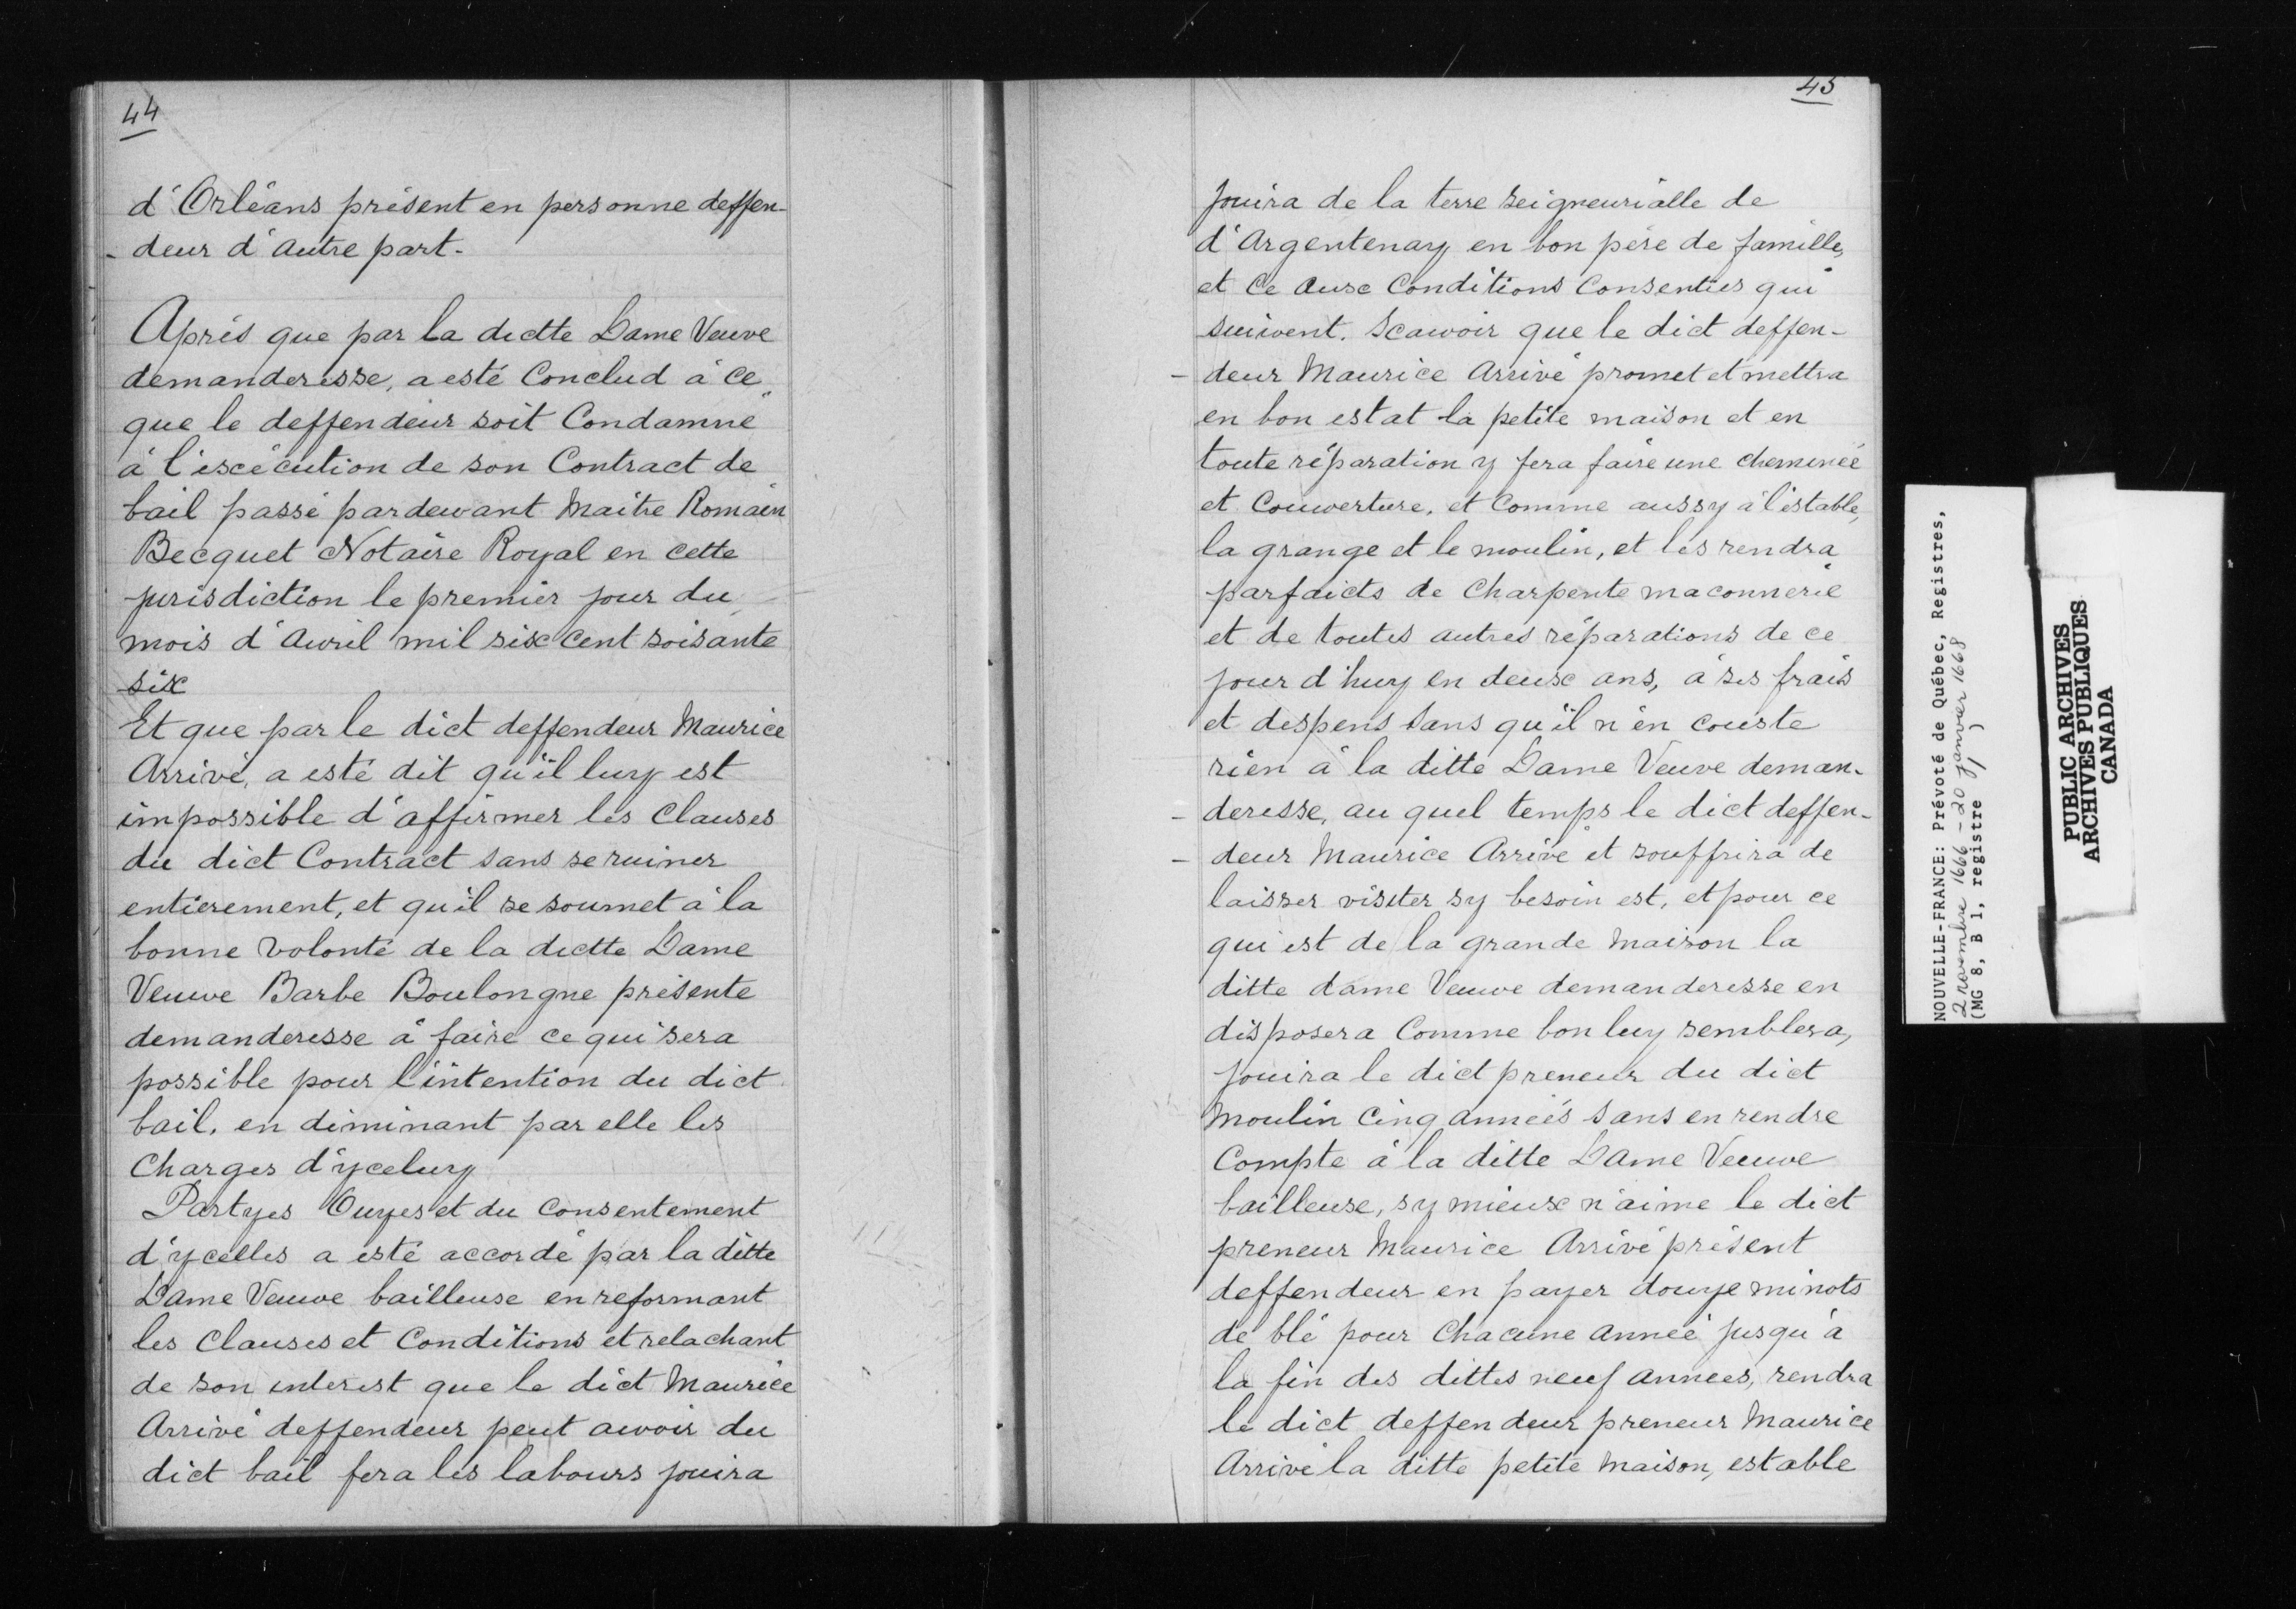 44
d'Orléans présent en personne deffen-
- deur d'autre part.
Après que par la dictte Dame Veuve
demanderesse, a esté Conclud à ce
que le deffendeur soit Condamné
à l'excécution de son Contract de
bail passé pardevant Maitre Romain
Becquet Notaire Royal en cette
jurisdiction le premier jour du
mois d'Avril mil six cent soisante
six
Et que par le dict deffendeur Maurice
Arrivé, a esté dit qu'il luy est
impossible d'affirmer les Clauses
du dict Contract sans se ruiner
entièrement, et qu'il se soumet à la
bonne volonté de la dictte Dame
Veuve Barbe Boulongne présente
demanderesse à faire ce qui sera
possible pour l'intention du dict
bail, en diminant par elle les
Charges d'yceluy
Partyes Ouyes et du Consentement
d'ycelles a esté accordé par la ditte
Dame Veuve bailleuse en reformant
les Clauses et Conditions et relachant
de son interest que le dict Maurice
Arrivé deffendeur peut avoir du
dict bail fera les labours jouira
45
jouira de la terre seigneurialle de
d'Argentenay en bon père de famille,
et Ce aux Conditions Consenties qui
suivent. Scavoir que le dict deffen-
- deur Maurice Arrivé promet et mettra
en bon estat la petite maison et en
toute réparation y fera faire une cheminée
et Couverture, et Comme aussy à l'estable,
la grange et le moulin, et les rendra
parfaicts de Charpente maconnerie
et de toutes autres réparations de ce
jour d'huy en deux ans, à ses frais
et despens sans qu'il n'en couste
rien à la ditte Dame Veuve deman-
- deresse, au quel temps le dict deffen-
- deur Maurice Arrivé et souffrira de
laisser visiter sy besoin est, et pour ce
qui est de la grande maison la
ditte dame Veuve demanderesse en
disposera Comme bon luy semblera,
jouira le dict preneur du dict
Moulin Cinq années sans en rendre
Compte à la ditte Dame Veuve
bailleuse, sy mieux n'aime le dict
preneur Maurice Arrivé présent
deffendeur en payer douze minots
de blé pour Chacune année jusqu'à
la fin des dittes neuf années, rendra
le dict deffendeur preneur Maurice
Arrivé la ditte petite maison, estable
NOUVELLE-FRANCE: Prévoté de Québec, Registres,
2 novembre 1666 - 20 janvier 1668
(MG 8, B 1, registre 1)
PUBLIC ARCHIVES
ARCHIVES PUBLIQUES
CANADA